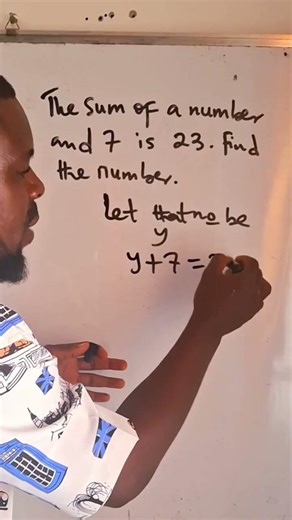 The Sum of a number
and 7 is 23. find
the number.
Let that no be
y
y + 7 = 2